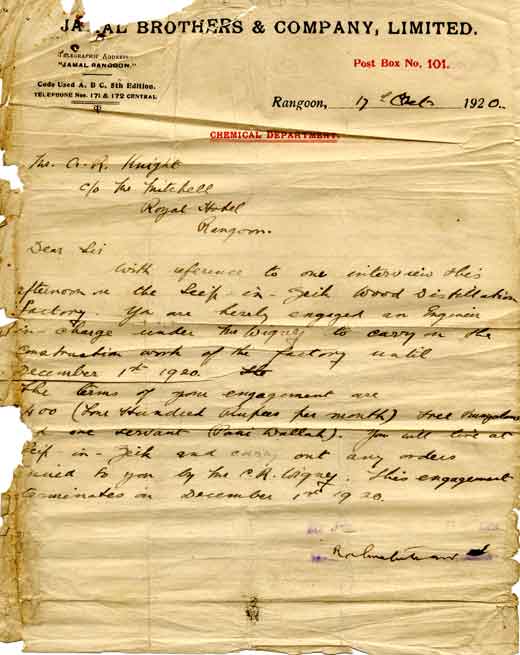 JAMAL BROTHERS & COMPANY, LIMITED.
TELEGRAPHIC ADDRESS
"JAMAL RANGOON."
Post Box No. 101.
Code Used A. B C. 5th Edition.
TELEPHONE Nos. 171 & 172 CENTRAL
Rangoon, 17th 1920.
CHEMICAL DEPARTMENT.
Mr. A. R. Knight
c/o Mr Mitchell
Royal Hotel
Rangoon.
Dear Sir
With reference to our interview this
afternoon re the Seip-in-Zeik Wood Distillation
Factory. You are hereby engaged as Engineer
in charge under Mr Wigney to carry on the
construction work of the factory until
December 1st 1920.
The terms of your engagement are
400 (Four Hundred Rupees per month) free Bungalow
and one servant (Pani Wallah). You will live at
Seip-in-Zeik and carry out any orders
to you by Mr C.R. Wigney. This engagement
terminates on December 1st 1920.